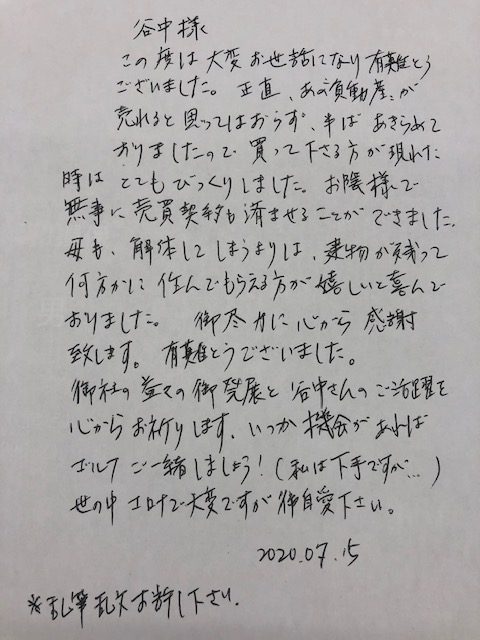 谷中様
この度は大変お世話になり有難とう
ございました。正直、あの負動産、が
売れると思ってはおらず、半ばあきらめて
おりましたので買って下さる方が現れた
時はとてもびっくりしました。お陰様で
無事に売買契約も済ませることができました。
母も、解体してしまうよりは、建物が残って
何方かに住んでもらえる方が嬉しいと喜んで
おりました。御尽力に心から感謝
致します。有難とうございました。
御社の益々の御発展と谷中さんのご活躍を
心からお祈りします、いつか機会があれば
ゴルフご一緒しましょう!(私は下手ですが…)
世の中コロナで大変ですが御自愛下さい。
2020.07.15
※乱筆乱文お許し下さい.